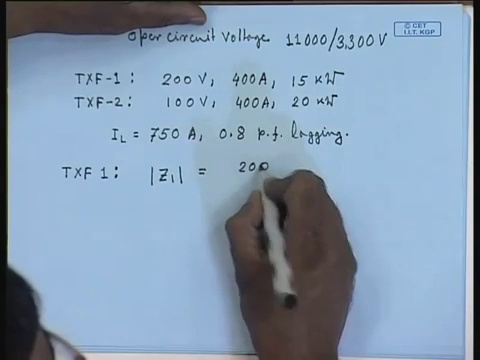 Open circuit Voltage 11000/3,300 V
© CET
I.I.T. KGP
TXF-1: 200 V, 400A, 15 kW
TXF-2: 100 V, 400A, 20 kW
IL = 750 A, 0.8 p.f. lagging.
TXF 1: |Z1| = 200